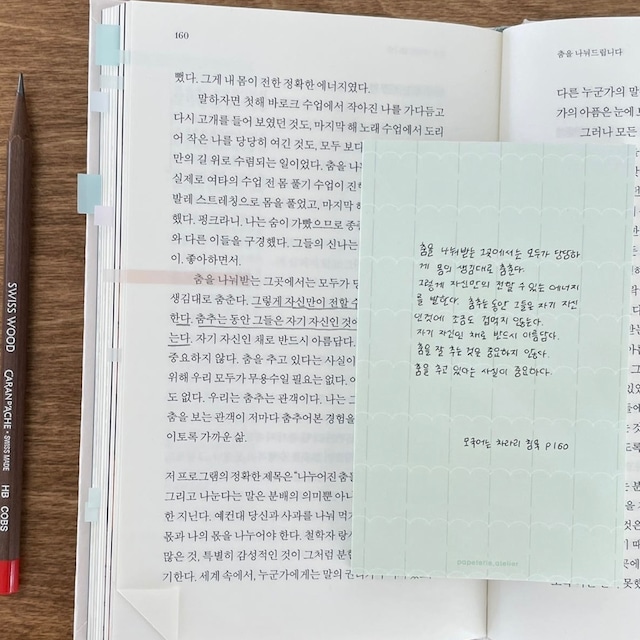 160
뻤다. 그게 내 몸이 전한 정확한 에너지였다.
말하자면 첫해 바로크 수업에서 작아진 나를 가다듬고
다시 고개를 들어 보였던 것도, 마지막 해 노래 수업에서 도리
어 작은 나를 당당히 여긴 것도, 모두 보다
만의 길 위로 수렴되는 일이었다. 춤을 나
실제로 여타의 수업 전 몸 풀기 수업이 진행
발레 스트레칭으로 몸을 풀었고, 마지막
했다. 펑크라니. 나는 숨이 가빴으므로 중
와 다른 이들을 구경했다. 그들의 신나는
이, 좋아하면서.
춤을 나눠받는 그곳에서는 모두가
생김대로 춤춘다. 그렇게 자신만이 전할 수
한다. 춤추는 동안 그들은 자기 자신인 것에
는다. 자기 자신인 채로 반드시 아름답다.
중요하지 않다. 춤을 추고 있다는 사실이
위해 우리 모두가 무용수일 필요는 없다.
도 없다. 우리는 춤추는 관객이다. 나는 그
춤을 보는 관객이 저마다 춤추어본 경험을
이토록 가까운 삶.
저 프로그램의 정확한 제목은 “나누어진 춤
그리고 나눈다는 말은 분배의 의미뿐 아니
한 지닌다. 예컨대 당신과 사과를 나눠 먹
몸과 나의 몸을 나누어야 한다. 철학자 랑시
많은 것, 특별히 감성적인 것이 그처럼 분할
기한다. 세계 속에서, 누군가에게는 말의
춤을 나눠드립니다
다른 누군가의 말
가의 아픔은 눈에 보
그러나 모든
춤을 나눠받는 그곳에서는 모두가 당당하
게 몸의 생김대로 춤춘다.
그렇게 자신만이 전할 수 있는 에너지
를 발한다. 춤추는 동안 그들은 자기 자신
인 것에 조금도 겁먹지 않는다.
자기 자신인 채로 반드시 아름답다.
춤을 잘 추는 것은 중요하지 않다.
춤을 추고 있다는 사실이 중요하다.
모국어는 차라리 침묵 p160
papeterie.atelier
SWISS WOOD
CARAN D'ACHE • SWISS MADE
HB
COBS